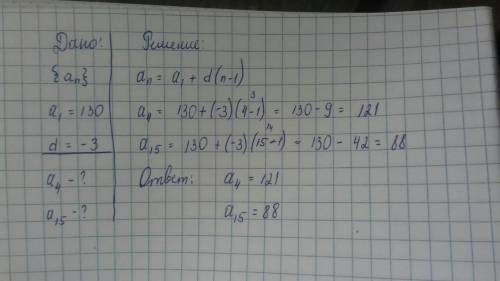 Дано:
{an}
a1 = 130
d = -3
a4 - ?
a15 - ?
Решение:
an = a1 + d(n-1)
a4 = 130+(-3)(4-1)³ = 130-9 = 121
a15 = 130 +(-3)(15-1)¹⁴ = 130 - 42 = 88
Ответ: a4 = 121
a15 = 88